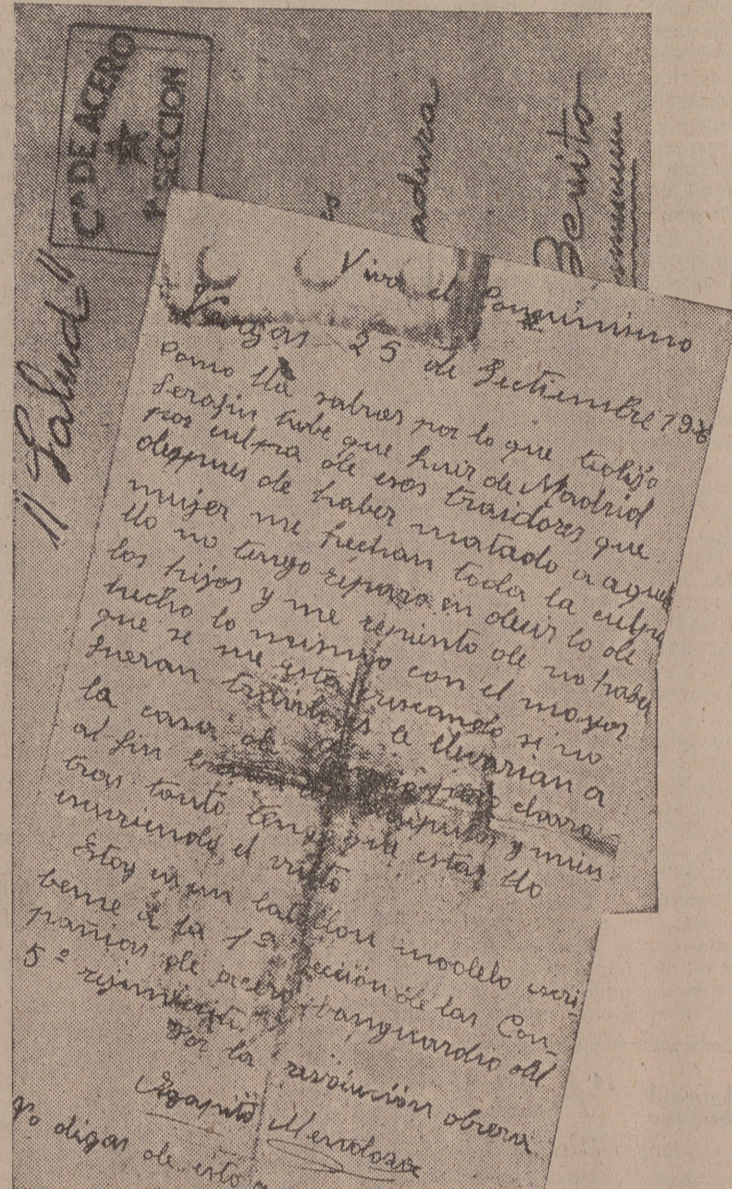 Cª DE ACERO
1ª SECCION
"Salud"
adura
Benito
Viva el Comunismo
Vargas 25 de Sectiembre 1936
Como lla sabras por lo que te dijo
Serafin tube que huir de Madrid
por culpa de esos traidores que
despues de haber matado a aquella
mujer me hechan toda la culpa
llo no tengo reparo en decir lo de
los hijos y me repinto de no haber
hecho lo mismo con el mayor
que se me esta criscando si no
fueran traidores le llevarian a
la casa de claro
al fin y mien
tras tanto tengo que estar llo
escurriendo el vulto
Estoy en un batellon modelo escri
beme a la 1ª sección de las Con
pañias de acero banguardia del
5º rejimiento.
Por la revolución obrera
Agapito Mendoza
No digas de esto a